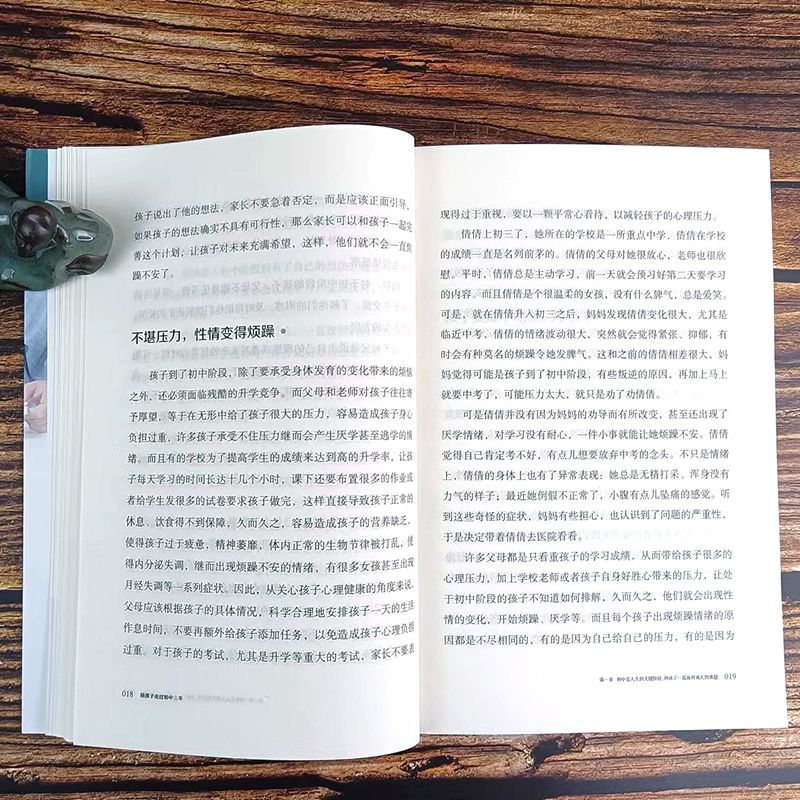 孩子说出了他的想法，家长不要急着否定，而是应该正面引导，
如果孩子的想法确实不具有可行性，那么家长可以和孩子一起完
善这个计划，让孩子对未来充满希望，这样，他们就不会一直焦
躁不安了。
不堪压力，性情变得烦躁
孩子到了初中阶段，除了要承受身体发育的变化带来的烦恼
之外，还必须面临残酷的升学竞争。而父母和老师对孩子往往寄
予厚望，等于在无形中给了孩子很大的压力，容易造成孩子身心
负担过重，许多孩子承受不住压力继而会产生厌学甚至逃学的情
绪。而且有的学校为了提高学生的成绩来达到高的升学率，让孩
子每天学习的时间长达十几个小时，课下还要布置很多的作业或
者给学生发很多的试卷要求孩子做完，这样直接导致孩子正常的
休息、饮食得不到保障。久而久之，容易造成孩子的营养缺乏，
使得孩子过于疲惫，精神萎靡，体内正常的生物节律被打乱，使
得内分泌失调，继而出现烦躁不安的情绪，有很多女孩甚至出现
月经失调等一系列症状。因此，从关心孩子心理健康的角度来说，
父母应该根据孩子的具体情况，科学合理地安排孩子一天的生活
作息时间，不要再额外给孩子添加任务，以免造成孩子心理负担
过重。对于孩子的考试，尤其是升学等重大的考试，家长不要表
018 陪孩子走过初中三年
现得过于重视，要以一颗平常心看待，以减轻孩子的心理压力。
倩倩上初三了，她所在的学校是一所重点中学，倩倩在学校
的成绩一直是名列前茅的。倩倩的父母对她很放心，老师也很欣
慰。平时，倩倩总是主动学习，前一天就会预习好第二天要学习
的内容。而且倩倩是个很温柔的女孩，没有什么脾气，总是爱笑。
可是，就在倩倩升入初三之后，妈妈发现倩倩变化很大，尤其是
临近中考，倩倩的情绪波动很大，突然就会觉得紧张、抑郁、有
时会有种莫名的烦躁令她发脾气。这和之前的倩倩相差很大，妈
妈觉得可能是孩子到了初中阶段，有些叛逆的原因，再加上马上
就要中考了，可能压力太大，就只是劝了劝倩倩。
可是倩倩并没有因为妈妈的劝导而有所改变，甚至还出现了
厌学情绪，对学习没有耐心，一件小事就能让她烦躁不安。倩倩
觉得自己肯定考不好，有点儿想要放弃中考的念头。不只是情绪
上，倩倩的身体上也有了异常表现：她总是无精打采、浑身没有
力气的样子；最近她例假不正常了，小腹有点儿坠痛的感觉。听
到这些奇怪的症状，妈妈有些担心，也认识到了问题的严重性，
于是决定带着倩倩去医院看看。
许多父母都是只看重孩子的学习成绩，从而带给孩子很多的
心理压力，加上学校老师或者孩子自身好胜心带来的压力，让处
于初中阶段的孩子不知道如何排解，久而久之，他们就会出现性
情的变化，开始烦躁、厌学等。而且每个孩子出现烦躁情绪的原
因都是不尽相同的，有的是因为自己给自己的压力，有的是因为
第一章 初中是人生的关键阶段，和孩子一起面对成长的难题 019